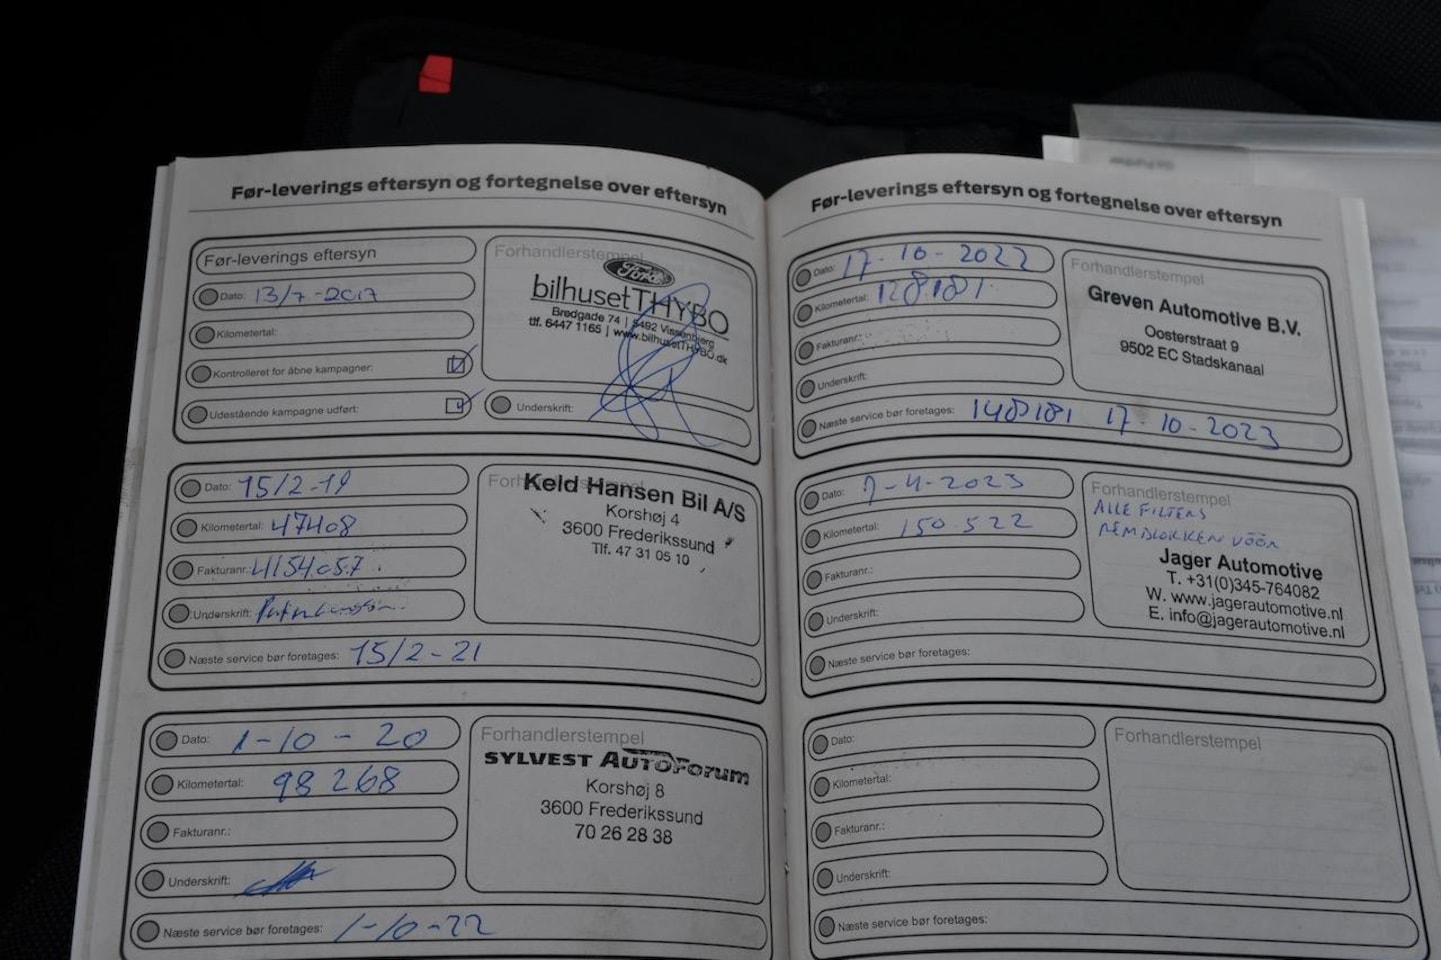 Før-leverings eftersyn og fortegnelse over eftersyn
Før-leverings eftersyn
Dato: 13/7-2017
Kilometertal:
Kontrolleret for åbne kampagner:
Udestående kampagne udført:
Forhandlerstempel
Ford
bilhusetTHYBO
Bredgade 74 | 5492 Vissenbjerg
tlf. 6447 1165 | www.bilhusetTHYBO.dk
Underskrift:
Dato: 15/2-19
Kilometertal: 47408
Fakturanr.: 4154057
Underskrift:
Næste service bør foretages: 15/2-21
Forhandlerstempel
Keld Hansen Bil A/S
Korshøj 4
3600 Frederikssund
Tlf. 47 31 05 10
Dato: 1-10-20
Kilometertal: 98 268
Fakturanr.:
Underskrift:
Næste service bør foretages: 1-10-22
Forhandlerstempel
SYLVEST AUTOFORUM
Korshøj 8
3600 Frederikssund
70 26 28 38
Før-leverings eftersyn og fortegnelse over eftersyn
Dato: 17-10-2022
Kilometertal: 128181
Fakturanr.:
Underskrift:
Næste service bør foretages: 148181 17-10-2023
Forhandlerstempel
Greven Automotive B.V.
Oosterstraat 9
9502 EC Stadskanaal
Dato: 7-4-2023
Kilometertal: 150.522
Fakturanr.:
Underskrift:
Næste service bør foretages:
Forhandlerstempel
ALLE FILTERS
REMBLOKKEN VÓÓR
Jager Automotive
T. +31(0)345-764082
W. www.jagerautomotive.nl
E. info@jagerautomotive.nl
Dato:
Kilometertal:
Fakturanr.:
Underskrift:
Næste service bør foretages:
Forhandlerstempel